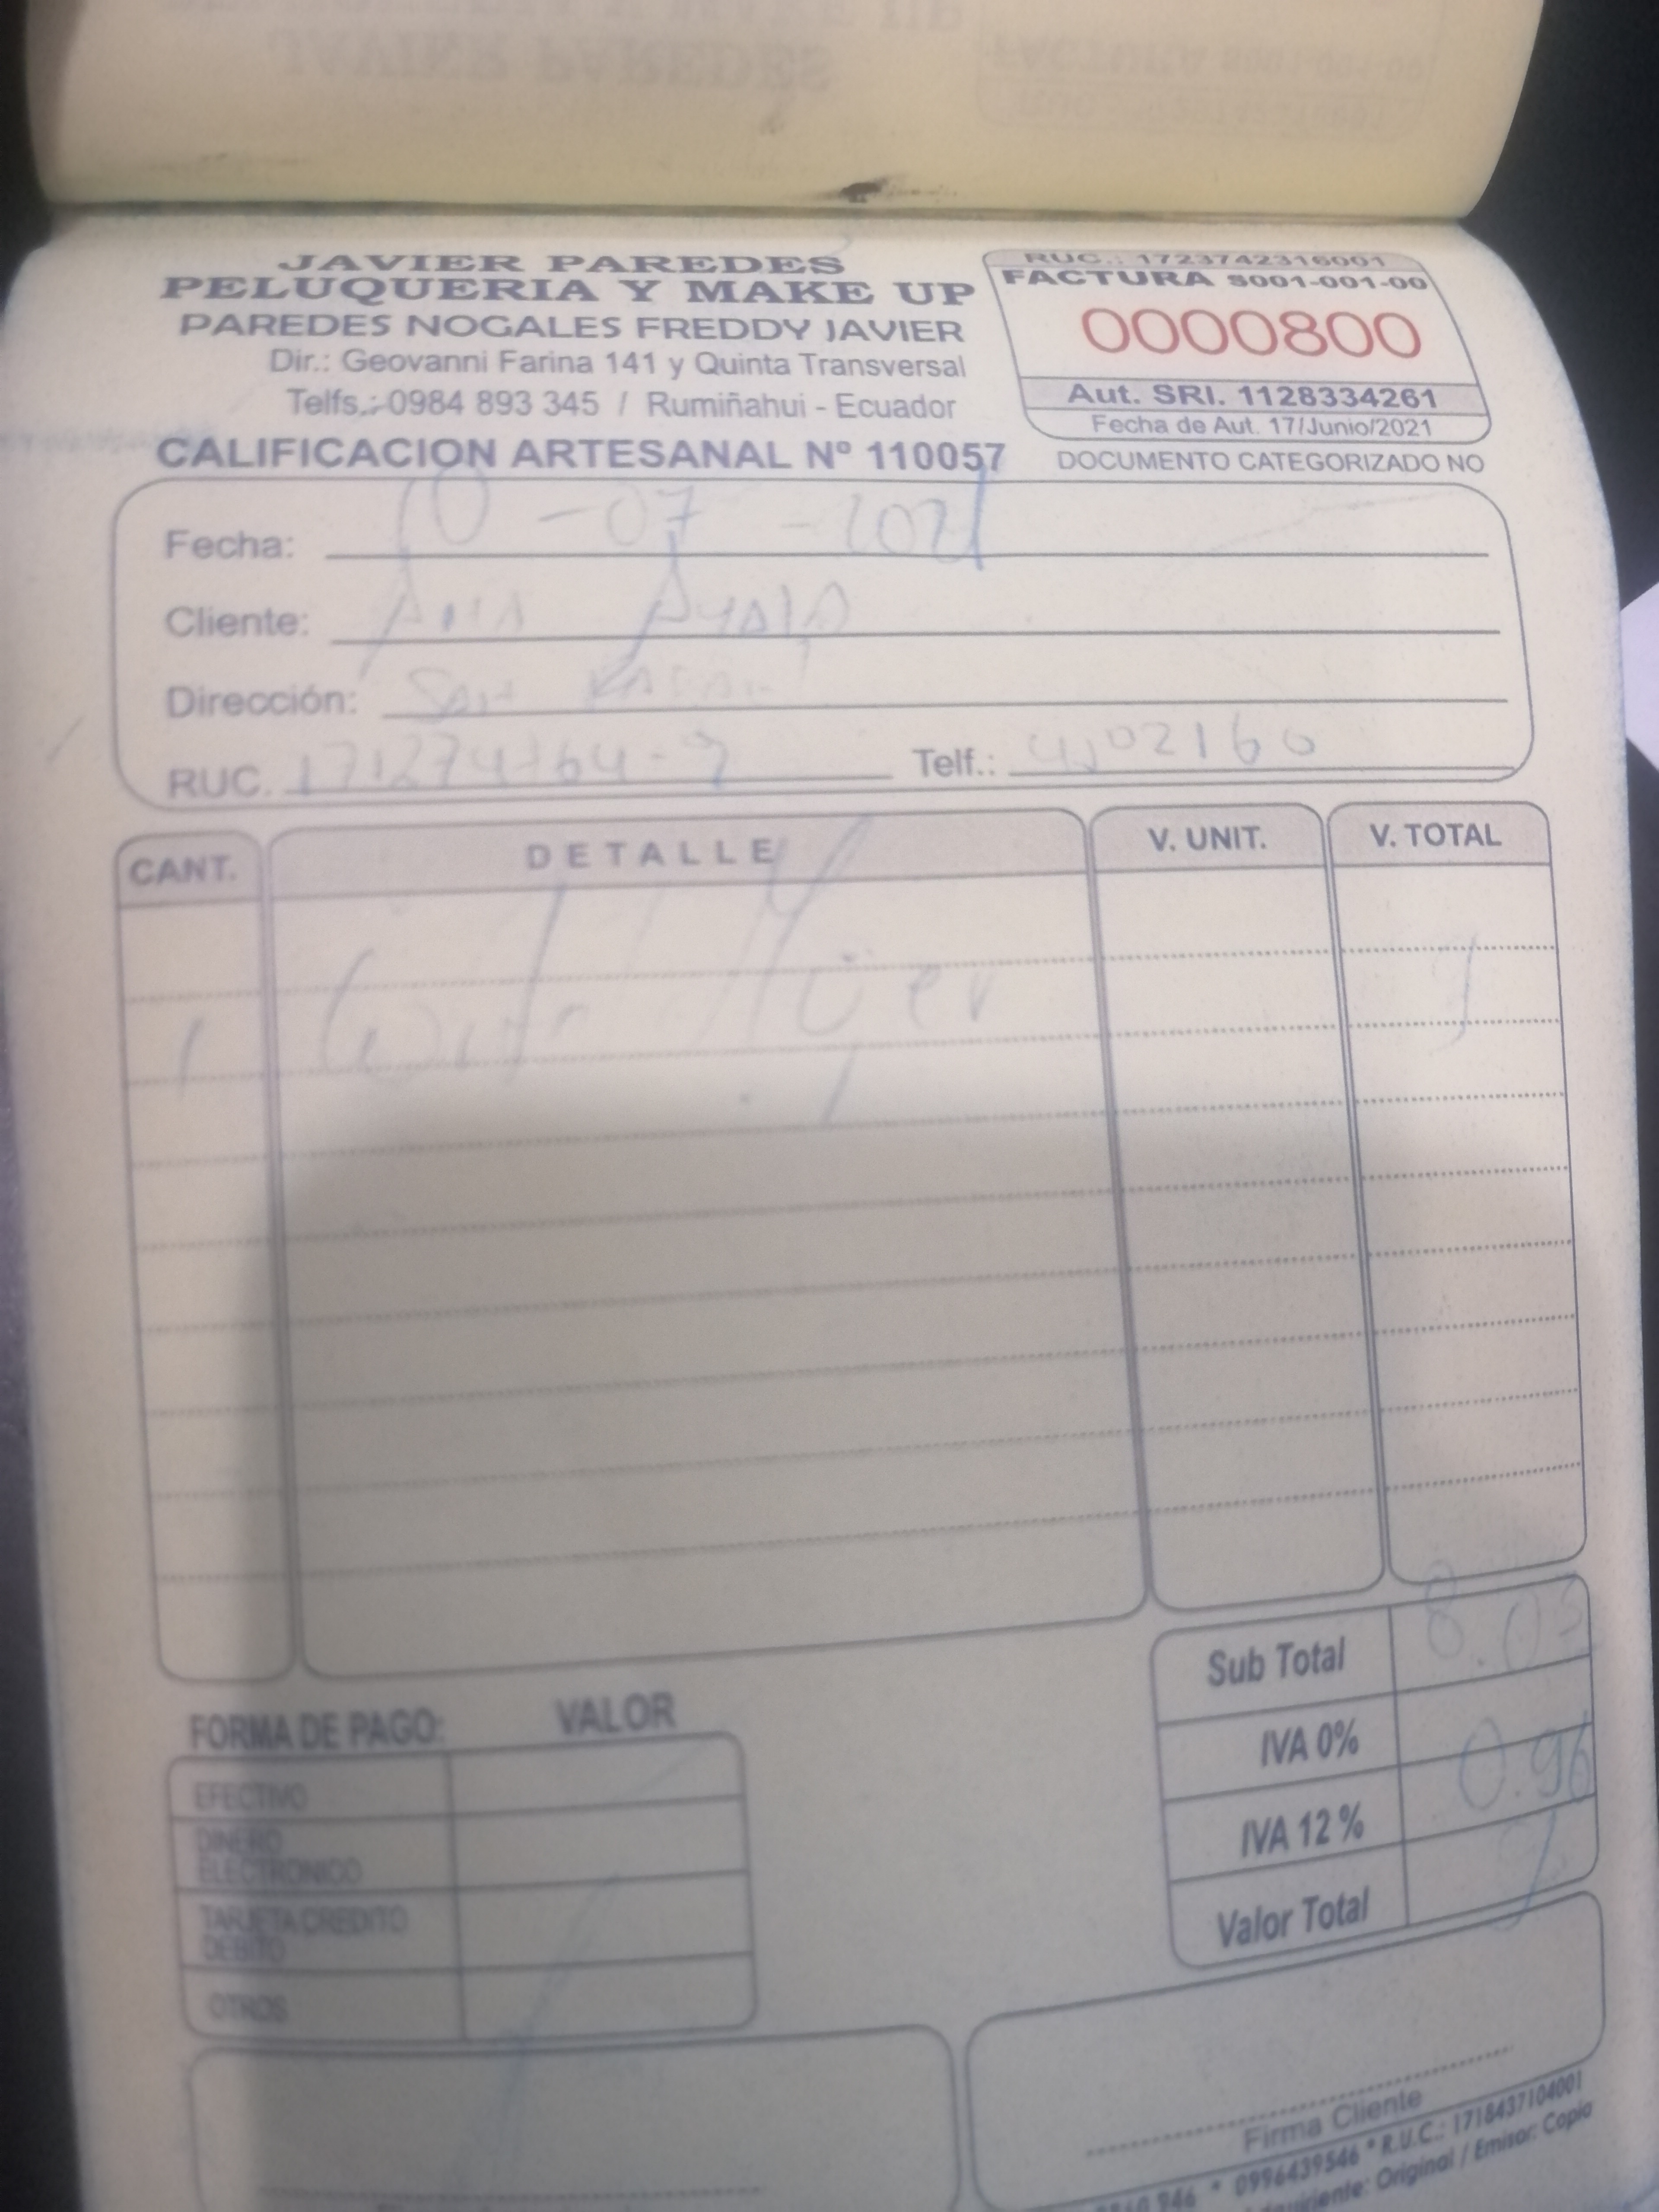 JAVIER PAREDES
PELUQUERIA Y MAKE UP
PAREDES NOGALES FREDDY JAVIER
Dir.: Geovanni Farina 141 y Quinta Transversal
Telfs.: 0984 893 345 / Rumiñahui - Ecuador
CALIFICACION ARTESANAL Nº 110057
RUC.: 1723742316001
FACTURA S001-001-00
0000800
Aut. SRI. 1128334261
Fecha de Aut. 17/Junio/2021
DOCUMENTO CATEGORIZADO NO
Fecha: 10-07-2021
Cliente: Ana Ayala
Dirección: San
RUC. Telf.:
CANT. DETALLE V. UNIT. V. TOTAL
1
Sub Total 8.03
IVA 0%
IVA 12% 0.96
Valor Total
FORMA DE PAGO: VALOR
EFECTIVO
DINERO ELECTRONICO
TARJETA CREDITO DEBITO
OTROS
Firma Cliente
* 0996439546 * R.U.C.: 1718437104001
Original / Emisor: Copia